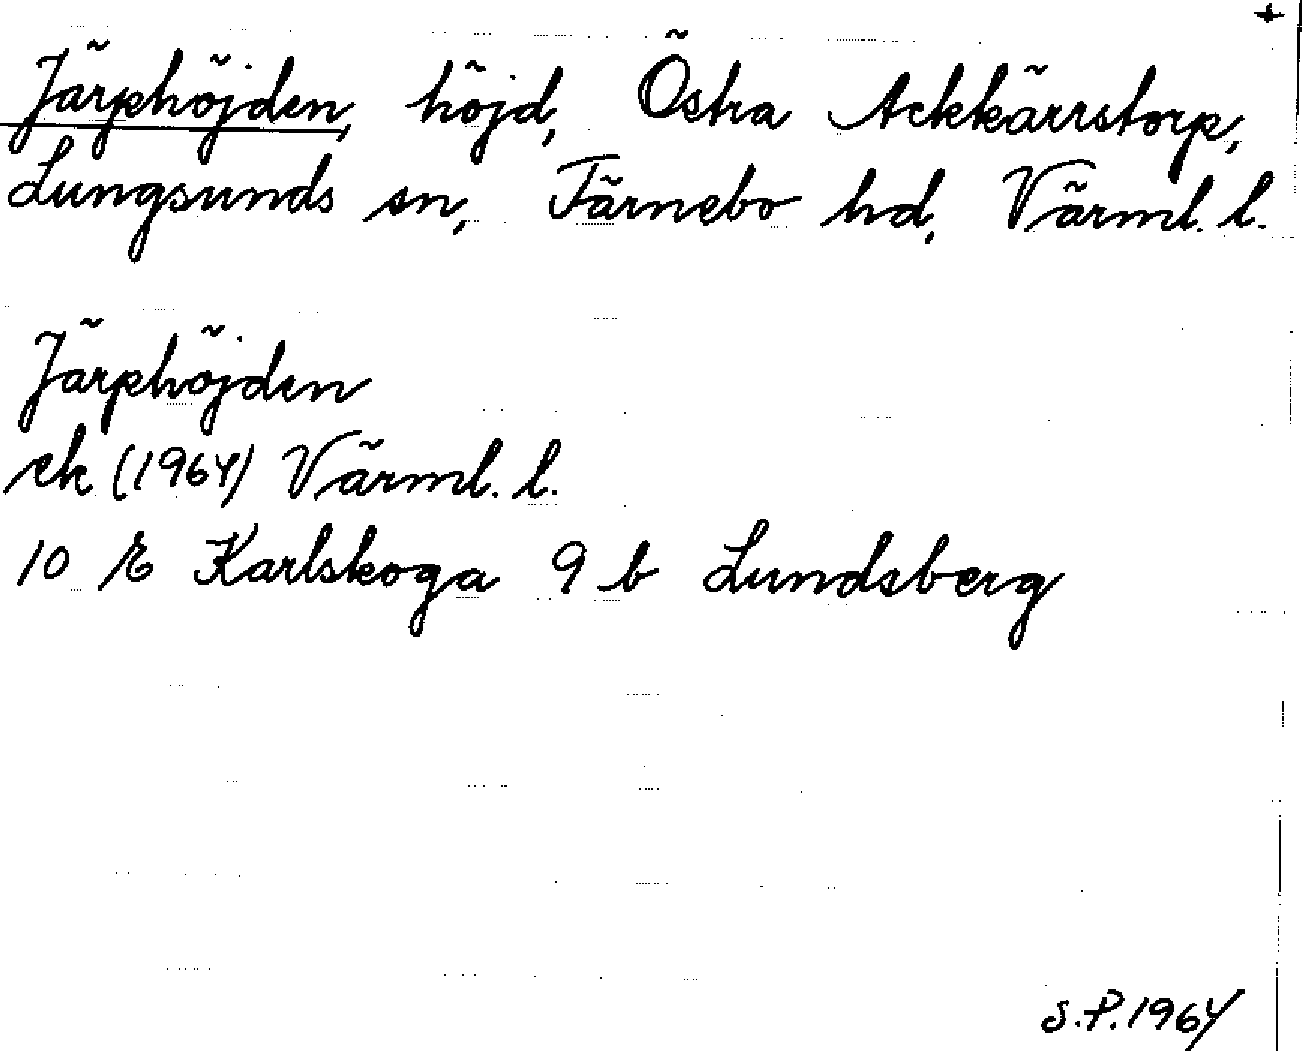 +
Järphöjden, höjd, Östra Ackkärrstorp,
Lungsunds sn, Färnebo hd, Värml. l.
Järphöjden
ek (1964) Värml. l.
10 E Karlskoga 9 b Lundsberg
S.P. 1964